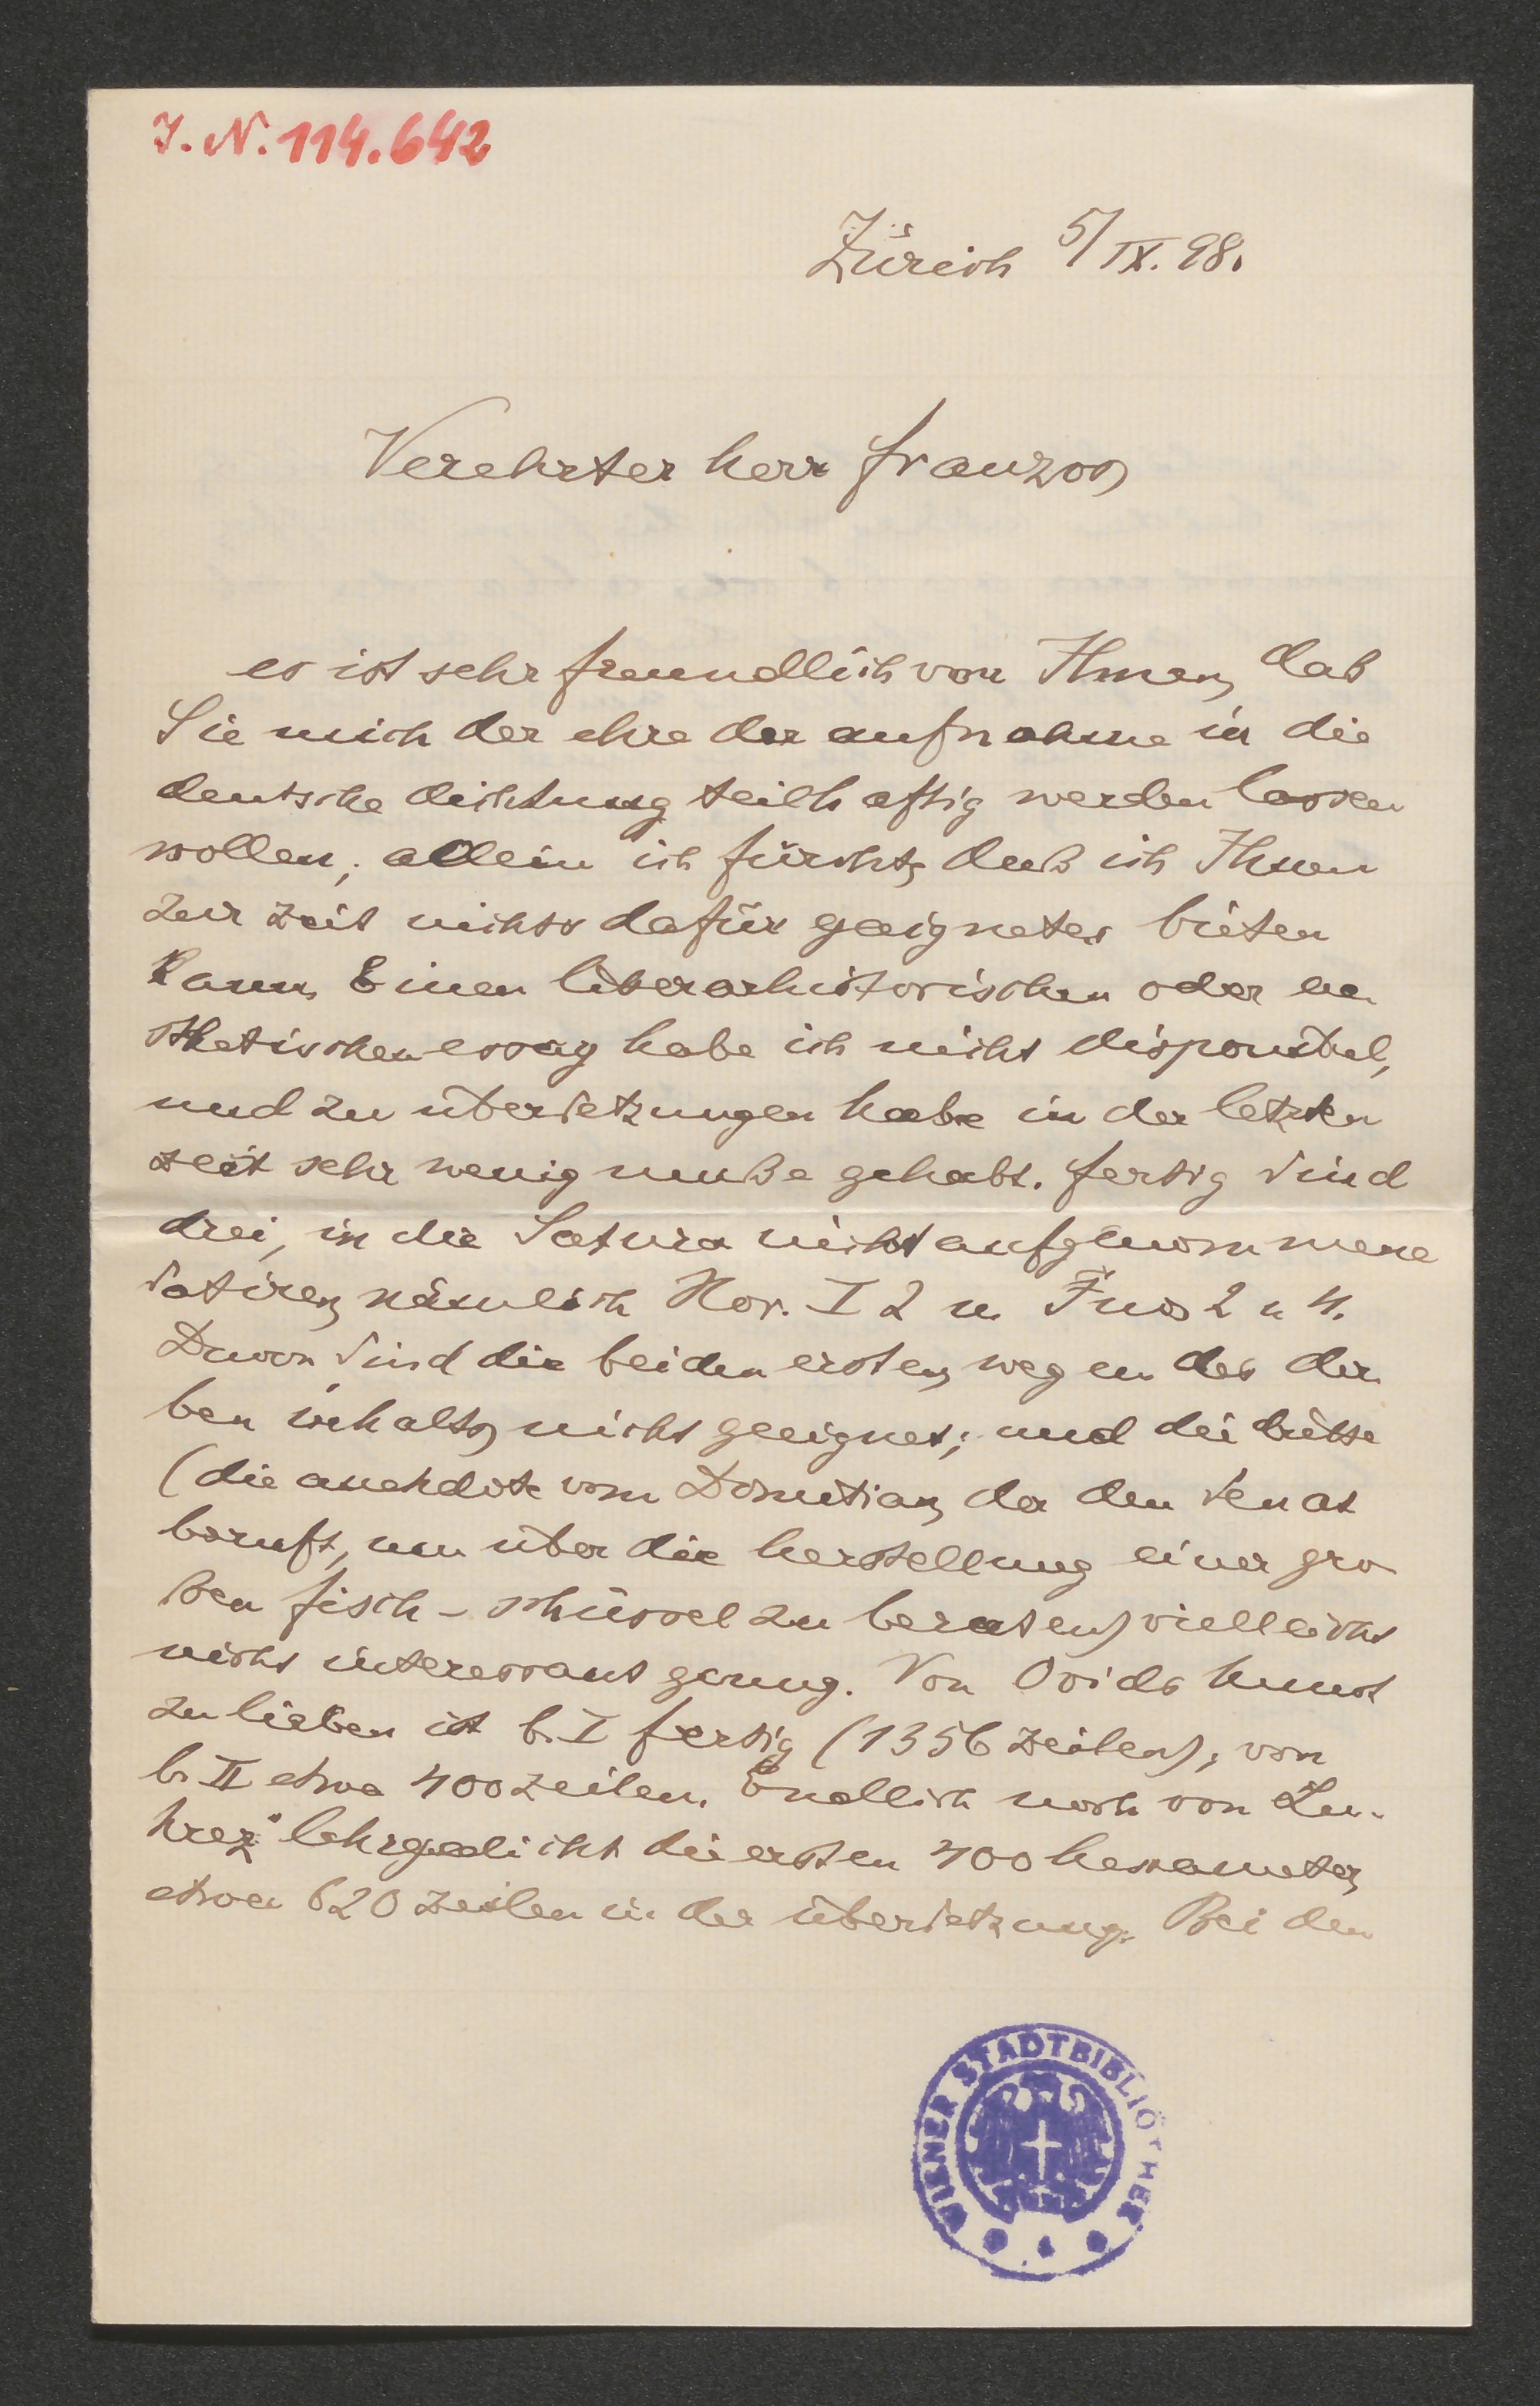 I. N. 114.642
Zürich 5/IX. 98.
Verehrter herr franzos,
es ist sehr freundlich von Ihnen, daß
Sie mich der ehre der aufnahme in die
deutsche dichtung teilhaftig werden lassen
wollen; allein ich fürchte, daß ich Ihnen
zur zeit nichts dafür geeignetes bieten
kann. Einen literarhistorischen oder ae-
sthetischen essay habe ich nicht disponibel,
und zu übersetzungen habe in der letzten
zeit sehr wenig muße gehabt. fertig sind
drei, in die Satura nicht aufgenommene
satiren, nämlich Hor. I 2 u Juv 2 u 4.
Davon sind die beiden ersten, wegen des der-
ben inhalts, nicht geeignet; und die dritte
(die anekdote vom Domitian, der den senat
beruft, um über die herstellung einer gro-
ßen fisch-schüssel zu beraten) vielleicht
nicht interessant genug. Von Ovids kunst
zu lieben ist b. I fertig (1356 zeilen), von
b. II etwa 400 zeilen. Endlich noch von Lu-
krez' lehrgedicht die ersten 400 hexameter,
etwa 620 zeilen in der übersetzung. Bei den
WIENER STADTBIBLIOTHEK